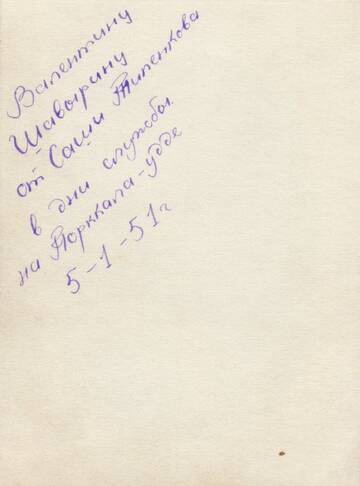 Валентину
Шавырину
от Саши Пипенкова
в дни службы
на Порккала-удде
5-1-51г